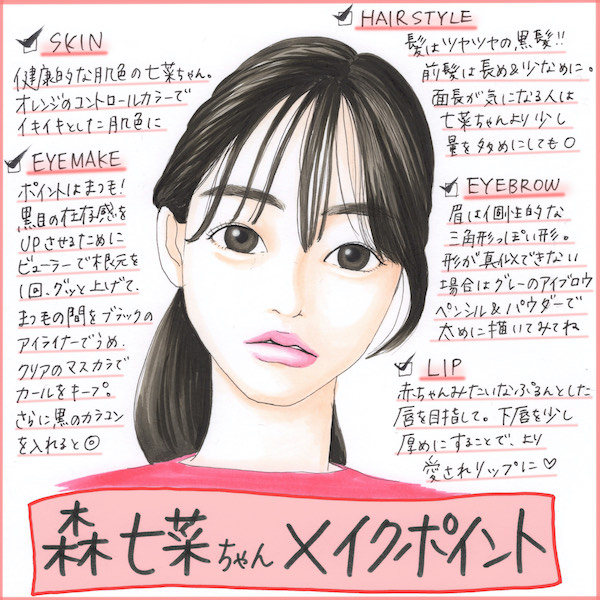 SKIN
健康的な肌色の七菜ちゃん。
オレンジのコントロールカラーで
イキイキとした肌色に
EYEMAKE
ポイントはまつも!
黒目の存在感を
UPさせるために
ビューラーで根元を
1回、グッと上げて、
まつもの間をブラックの
アイライナーでうめ、
クリアのマスカラで
カールをキープ。
さらに黒のカラコン
を入れると◎
HAIRSTYLE
髪はツヤツヤの黒髪!!
前髪は長め&少なめに。
面長が気になる人は
七菜ちゃんより少し
量を多めにしても○
EYEBROW
眉は個性的な
三角形っぽい形。
形が真似できない
場合はグレーのアイブロウ
ペンシル&パウダーで
太めに描いてみてね
LIP
赤ちゃんみたいなぷるんとした
唇を目指して。下唇を少し
厚めにすることで、より
愛されリップに♡
森七菜ちゃんメイクポイント